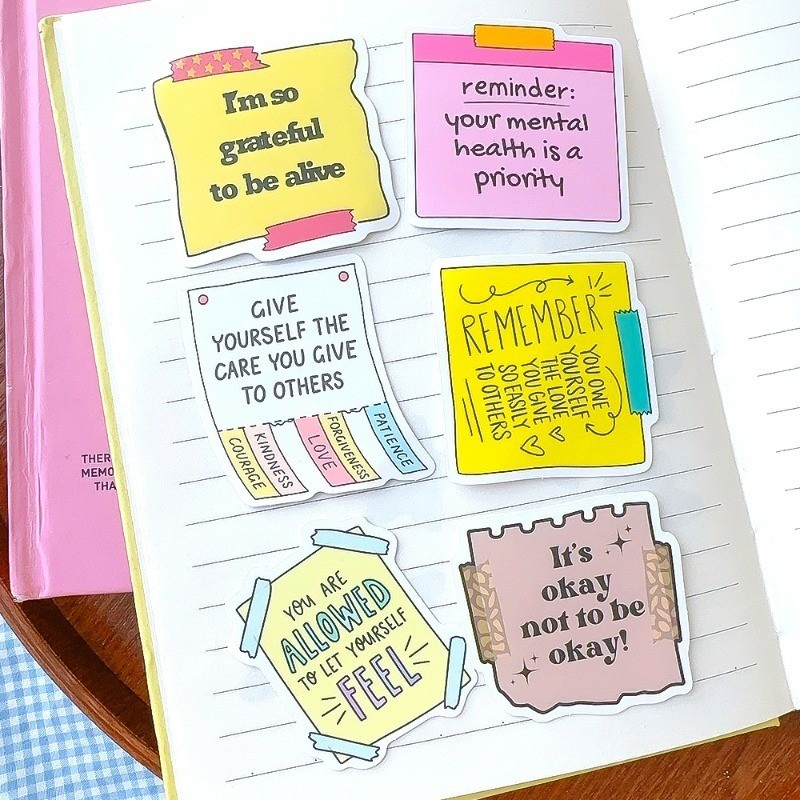 I'm so
grateful
to be alive
reminder:
your mental
health is a
priority
GIVE
YOURSELF THE
CARE YOU GIVE
TO OTHERS
COURAGE
KINDNESS
LOVE
FORGIVENESS
PATIENCE
REMEMBER
YOU OWE
YOURSELF
THE LOVE
YOU GIVE
SO EASILY
TO OTHERS
YOU ARE
ALLOWED
TO LET YOURSELF
FEEL
It's
okay
not to be
okay!
THER
MEMO
THA